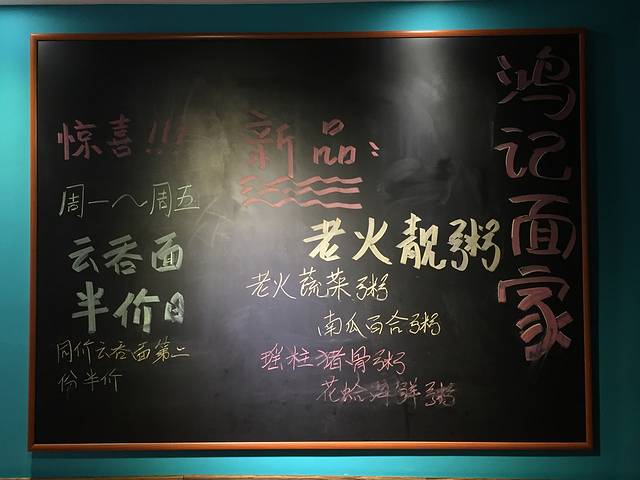 鸿记面家
惊喜!!!
周一～周五
云吞面
半价日
同价云吞面第二
份半价
新品:
老火靓粥
老火蔬菜粥
南瓜百合粥
瑶柱猪骨粥
花蛤海鲜粥